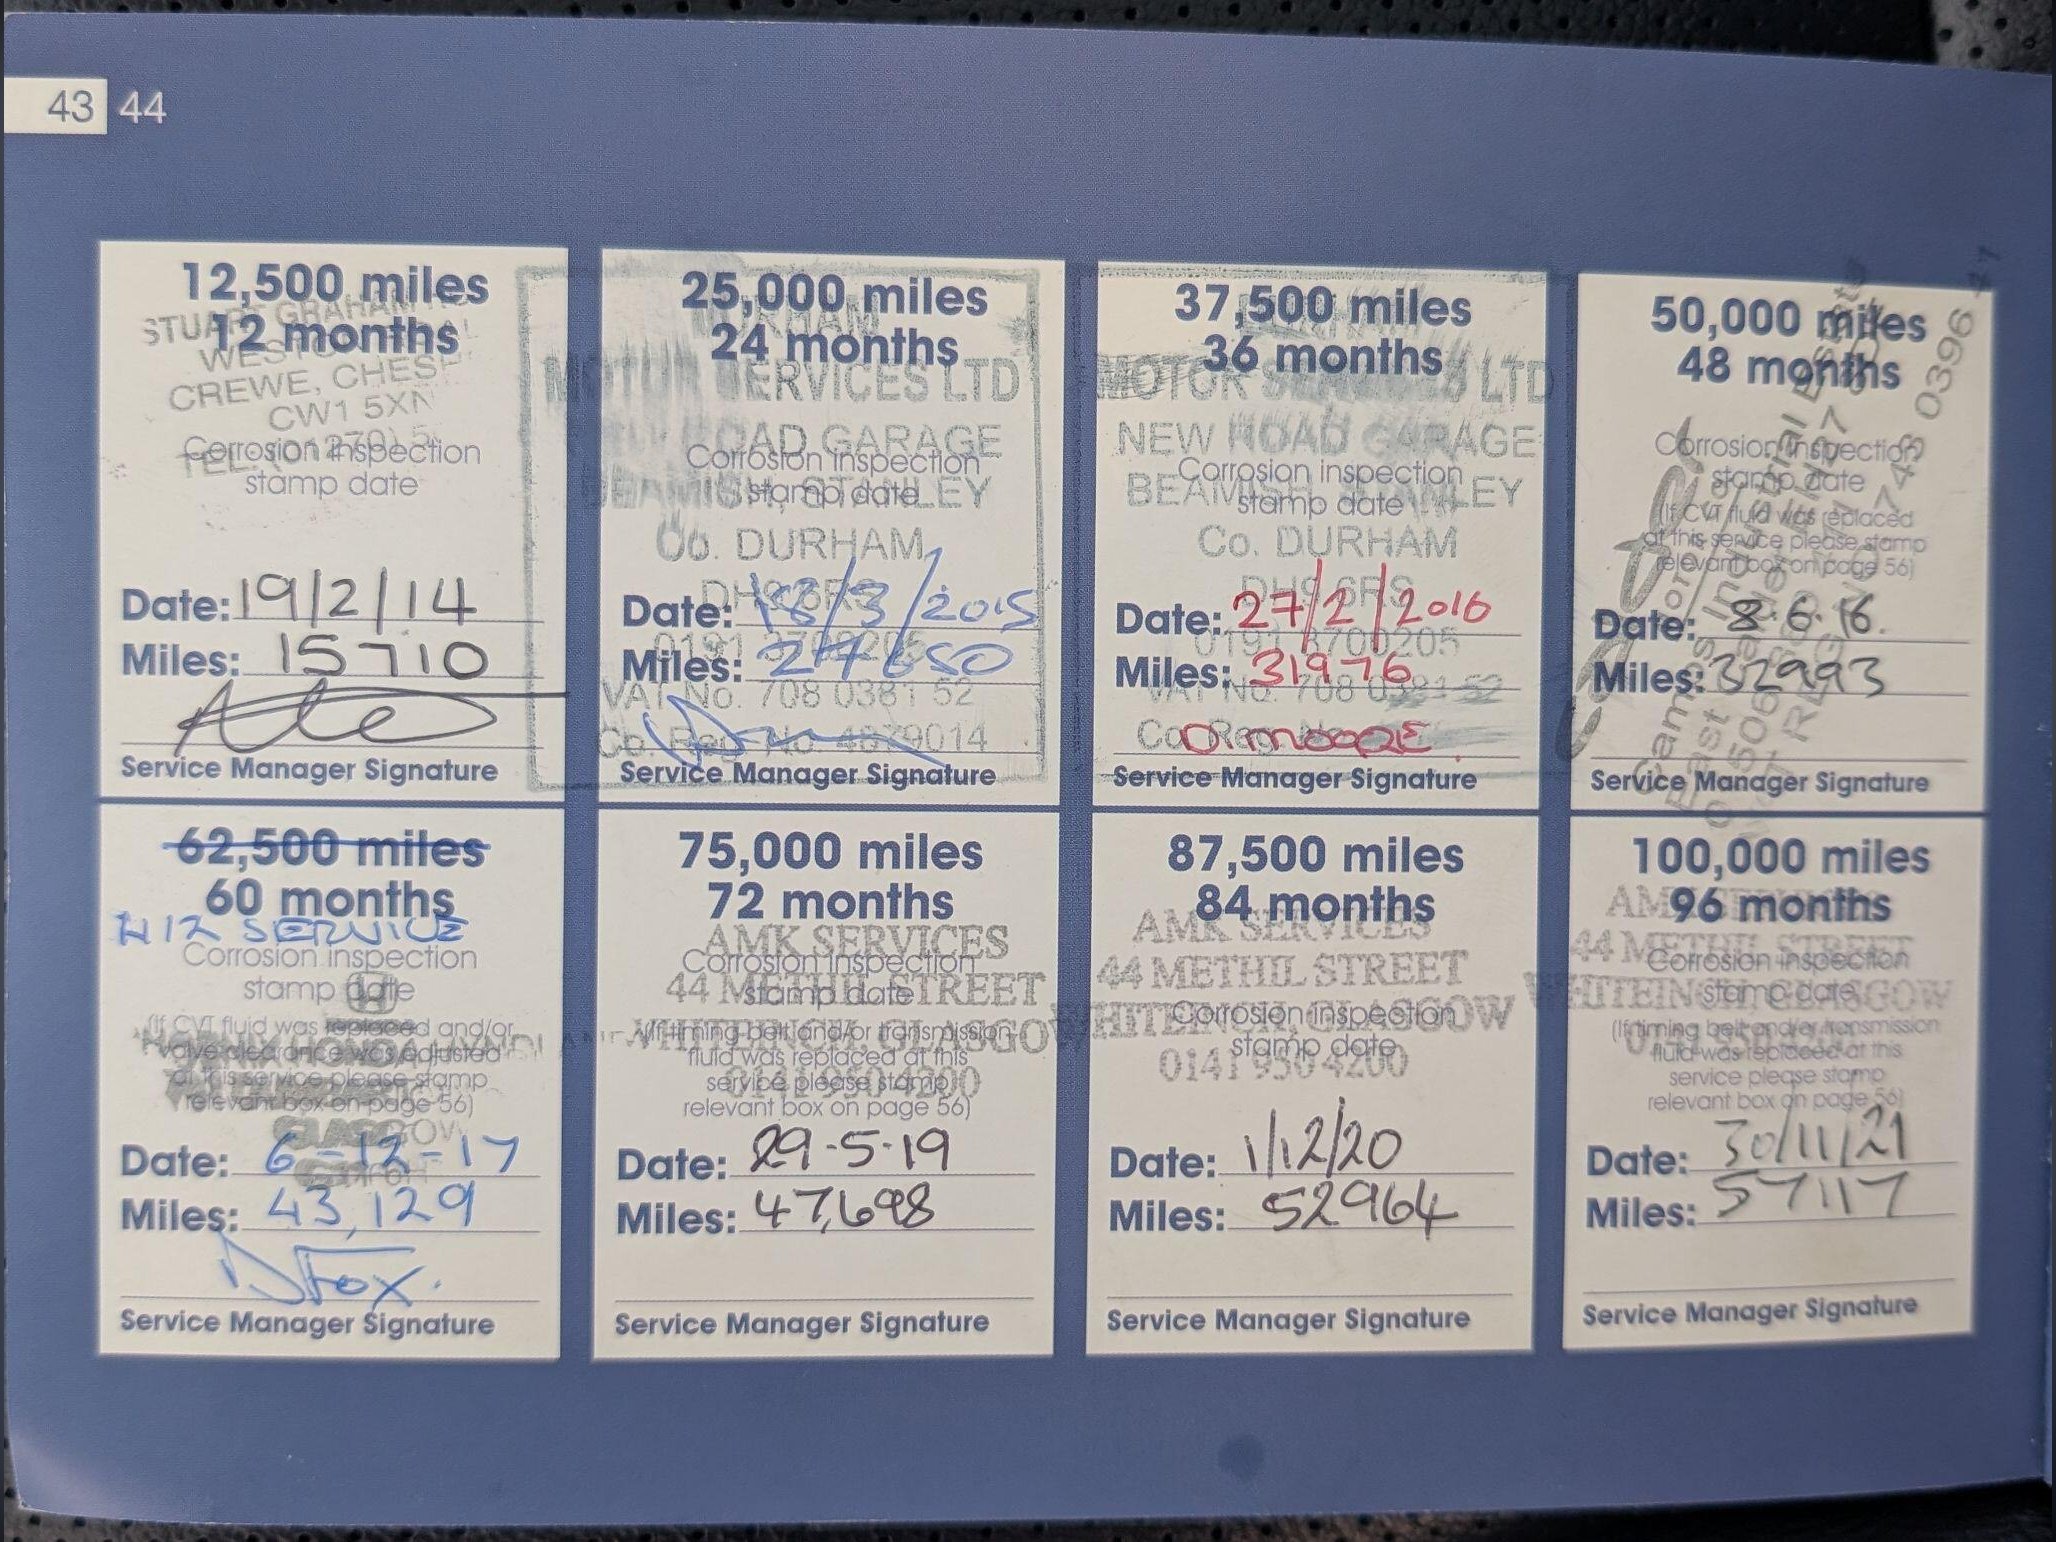 43 44
12,500 miles
12 months
STUART GRAHAM
CREWE, CHESH
CW1 5XN
Corrosion inspection
stamp date
Date: 19/2/14
Miles: 15710
Service Manager Signature
25,000 miles
24 months
DURHAM
MOTOR SERVICES LTD
ROAD GARAGE
BEAMISH, STANLEY
Co. DURHAM
DH9 6RS
Corrosion inspection
stamp date
Date: 18/3/2015
Miles:
VAT No. 708 0381 52
Co. Reg. No 4679014
Service Manager Signature
37,500 miles
36 months
MOTOR SERVICES LTD
NEW ROAD GARAGE
BEAMISH, STANLEY
Co. DURHAM
DH9 6RS
0191 3700205
VAT No. 708 0381 52
Co. Reg. No
Corrosion inspection
stamp date
Date: 27/2/2016
Miles: 31976
D MOORE
Service Manager Signature
50,000 miles
48 months
Corrosion inspection
stamp date
(If CVT fluid was replaced
at this service please stamp
relevant box on page 56)
Date: 8.6.16.
Miles: 32993
Service Manager Signature
62,500 miles
60 months
SERVICE
Corrosion inspection
stamp date
(If CVT fluid was replaced and/or
valve clearance was adjusted
at this service please stamp
relevant box on page 56)
GLASGOW
Date: 6-12-17
Miles: 43,129
Service Manager Signature
75,000 miles
72 months
AMK SERVICES
44 METHIL STREET
WHITEINCH, GLASGOW
0141 950 4200
Corrosion inspection
stamp date
(If timing belt and/or transmission
fluid was replaced at this
service please stamp
relevant box on page 56)
Date: 29-5-19
Miles: 47,698
Service Manager Signature
87,500 miles
84 months
AMK SERVICES
44 METHIL STREET
WHITEINCH, GLASGOW
0141 950 4200
Corrosion inspection
stamp date
Date: 1/12/20
Miles: 52964
Service Manager Signature
100,000 miles
96 months
AMK SERVICES
44 METHIL STREET
WHITEINCH, GLASGOW
Corrosion inspection
stamp date
(If timing belt and/or transmission
fluid was replaced at this
service please stamp
relevant box on page 56)
Date: 30/11/21
Miles: 57117
Service Manager Signature